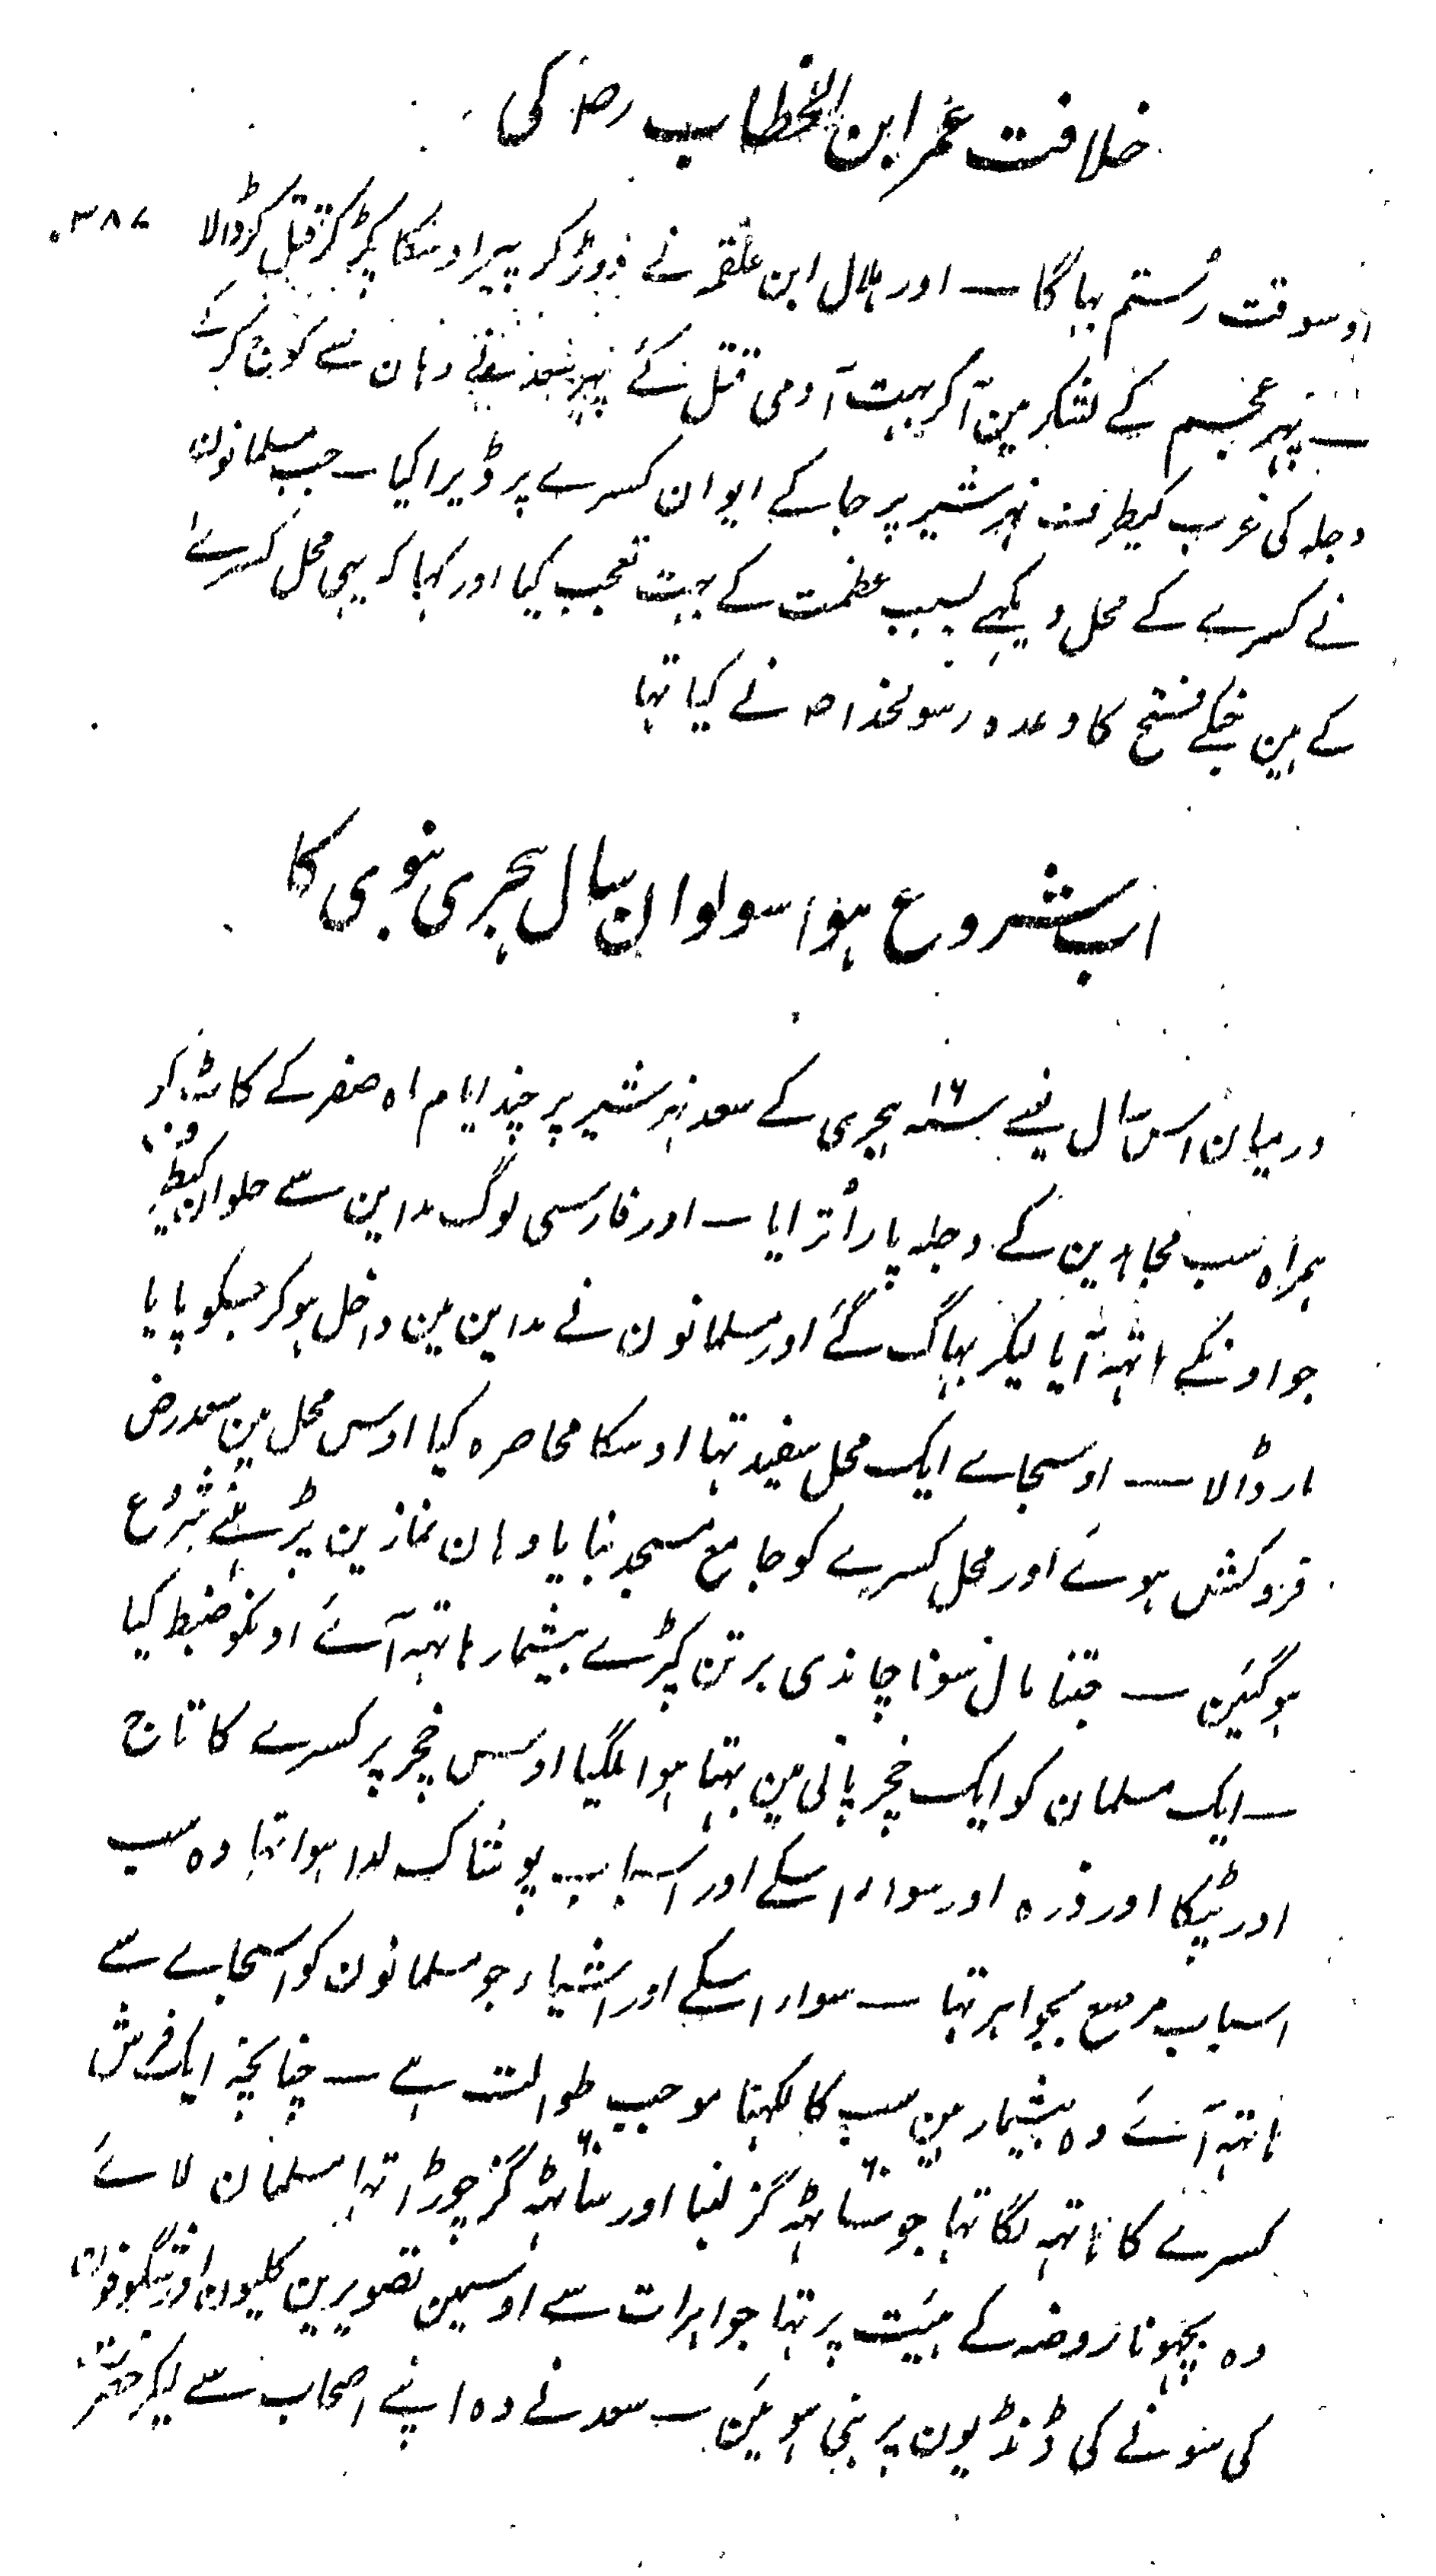 خلافت عمر ابن الخطاب رضہ کی
۳۸۷
اوسوقت رستم بہاگا — اور ہلال ابن علقمہ نے دوڑ کر پیر اوسکا پکڑ کر قتل کر ڈالا
— پہر عجم کے لشکر مین آکر بہت آدمی قتل کئے پہر سعد نے وہان سے کوچ کرکے
دجلہ کی غرب کیطرف نہر شیر پر جا کے ایوان کسرے پر ڈیرا کیا — جب مسلمانون
نے کسرے کے محل دیکہے بسبب عظمت کے بہت تعجب کیا اور کہا کہ یہی محل کسرے
کے ہین جنکے فتح کا وعدہ رسولخدا صہ نے کیا تہا
اب شروع ہوا سولوان سال ہجری نبوی کا
درمیان اس سال یعنے سنہ ۱۶ ہجری کے سعد نہر شیر پر چند ایام ماہ صفر کے کاٹہ کر
ہمراہ سب مجاہدین کے دجلہ پار اُتر ایا — اور فارسی لوگ مداین سے حلوان کیطرف
جو اونکے ہاتہہ آیا لیکر بہاگ گئے اور مسلمانون نے مداین مین داخل ہو کر جسکو پایا
مار ڈالا — اوسجاے ایک محل سفید تہا اوسکا محاصرہ کیا اوس محل مین سعد رض
فروکش ہوے اور محل کسرے کو جامع مسجد بنایا وہان نمازین پڑہنے شروع
ہوگئین — جتنا مال سونا چاندی برتن کپڑے بیشمار ہاتہہ آے اونکو ضبط کیا
— ایک مسلمان کو ایک خچر پانی مین بہتا ہوا ملگیا اوس خچر پر کسرے کا تاج
اور ٹپکا اور ذرہ اور سواء اسکے اور اسباب پوشاک لدا ہوا تہا وہ سب
اسباب مرصع بجواہر تہا — سواء اسکے اور اشیاء جو مسلمانون کو اسجاے سے
ہاتہہ آے وہ بیشمار ہین سب کا لکہنا موجب طوالت ہے — چنانچہ ایک فرش
کسرے کا ہاتہہ لگا تہا جو ساٹہہ ۶۰ گز لنبا اور ساٹہہ ۶۰ گز چوڑا تہا مسلمان لاے
وہ بچہونا روضہ کے ہیئت پر تہا جواہرات سے اوسمین تصویرین کلیون اور شگوفون
کی سونے کی ڈنڈیون پر بنی ہوئین — سعد نے وہ اپنے اصحاب سے لیکر حضرت